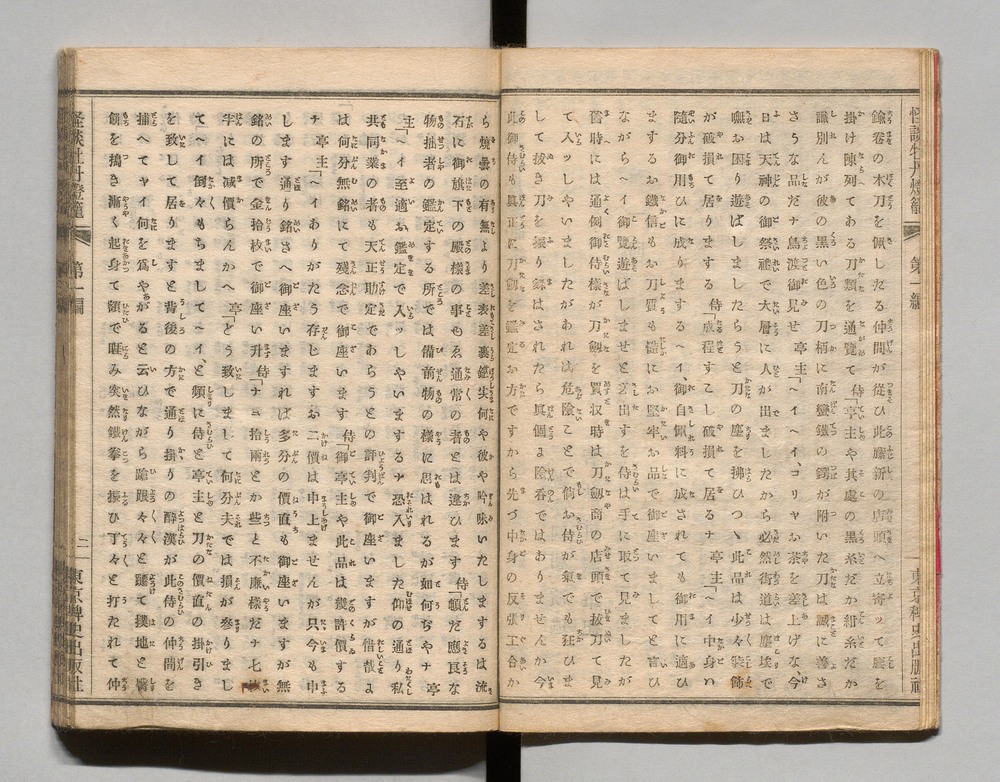 怪談牡丹燈籠
第一編
東京稗史出版社
錄卷の木刀を佩したる仲間が從ひ此膽新の店頭へ立寄ッて腰を
掛け陳列てある刀類を通覽て 侍「亭主や其處の黒糸だか紺糸だか
識別んが彼の黒い色の刀柄に南蠻鐵の鍔が附いた刀は誠に善さ
さうな品だナ鳥渡御見せ 亭主「ヘイヘイ、コリャお茶を差上げな今
日は天神の御祭禮で大層に人が出ましたから必然街道は塵埃で
嘸お困り遊ばしましたらうと刀の塵を拂ひつゝ此品は少々裝飾
が破損て居りまする 侍「成程すこし破損て居るナ 亭主「ヘイ中身い
隨分御用ひに成りまするヘイ御自佩料に成されても御用に適ひ
まするお鐵信もお刀質も慥にお堅牢お品で御座いましてと言ひ
ながらヘイ御覽遊ばしませと差出すを侍は手に取て見ましたが
舊時には通例御侍樣が刀劔を買収時は刀劔商の店頭で拔刀て見
て入ッしやいましたがあれは危險ことで倘お侍が氣でも狂ひま
して拔き刀を振り𢌞はされたら眞個ま險呑ではありませんか今
此御侍も眞正に刀劔を鑑定お方ですから先づ中身の反張工合か
ら燒曇の有無より差表差裏鋩尖何や彼や吟味いたしまするは流
石に御旗下の殿樣の事もゑ通常の者とは違ひます 侍「頓だ應良な
物拙者の鑑定する所では備前物の樣に思はれるが如何ぢやナ 亭
主「ヘイ至適お鑑定で入ッしやいまするナ恐入ました仰の通り私
共同業の者も天正助定であらうとの評判で御座いますが借哉ま
は何分無銘にて殘念で御座います 侍「御亭主や此品は幾許價する
ナ 亭主「ヘイありがたう存じますお二價は申上ませんが只今も申
します通り銘さへ御座いますれば多分の價直も御座いますが無
銘の所で金拾枚で御座い升侍「ナニ拾兩とか些と不廉樣だナ七枚
半には减價らんかへ 亭「どう致しまして何分夫では損が參りまし
てヘイ倒々もちましてヘイ、と頻に侍ひと亭主と刀の價直の掛引き
を致して居りますと背後の方で通り掛りの醉漢が此侍の仲間を
捕へてヤイ何を爲やがると云ひながら踉蹌々々と踵て摸地と臀
餅を搗き漸く起身て額で睚み突然鐵拳を振ひ丁々と打たれて仲
怪談牡丹燈籠
第一編
二
東京稗史出版社